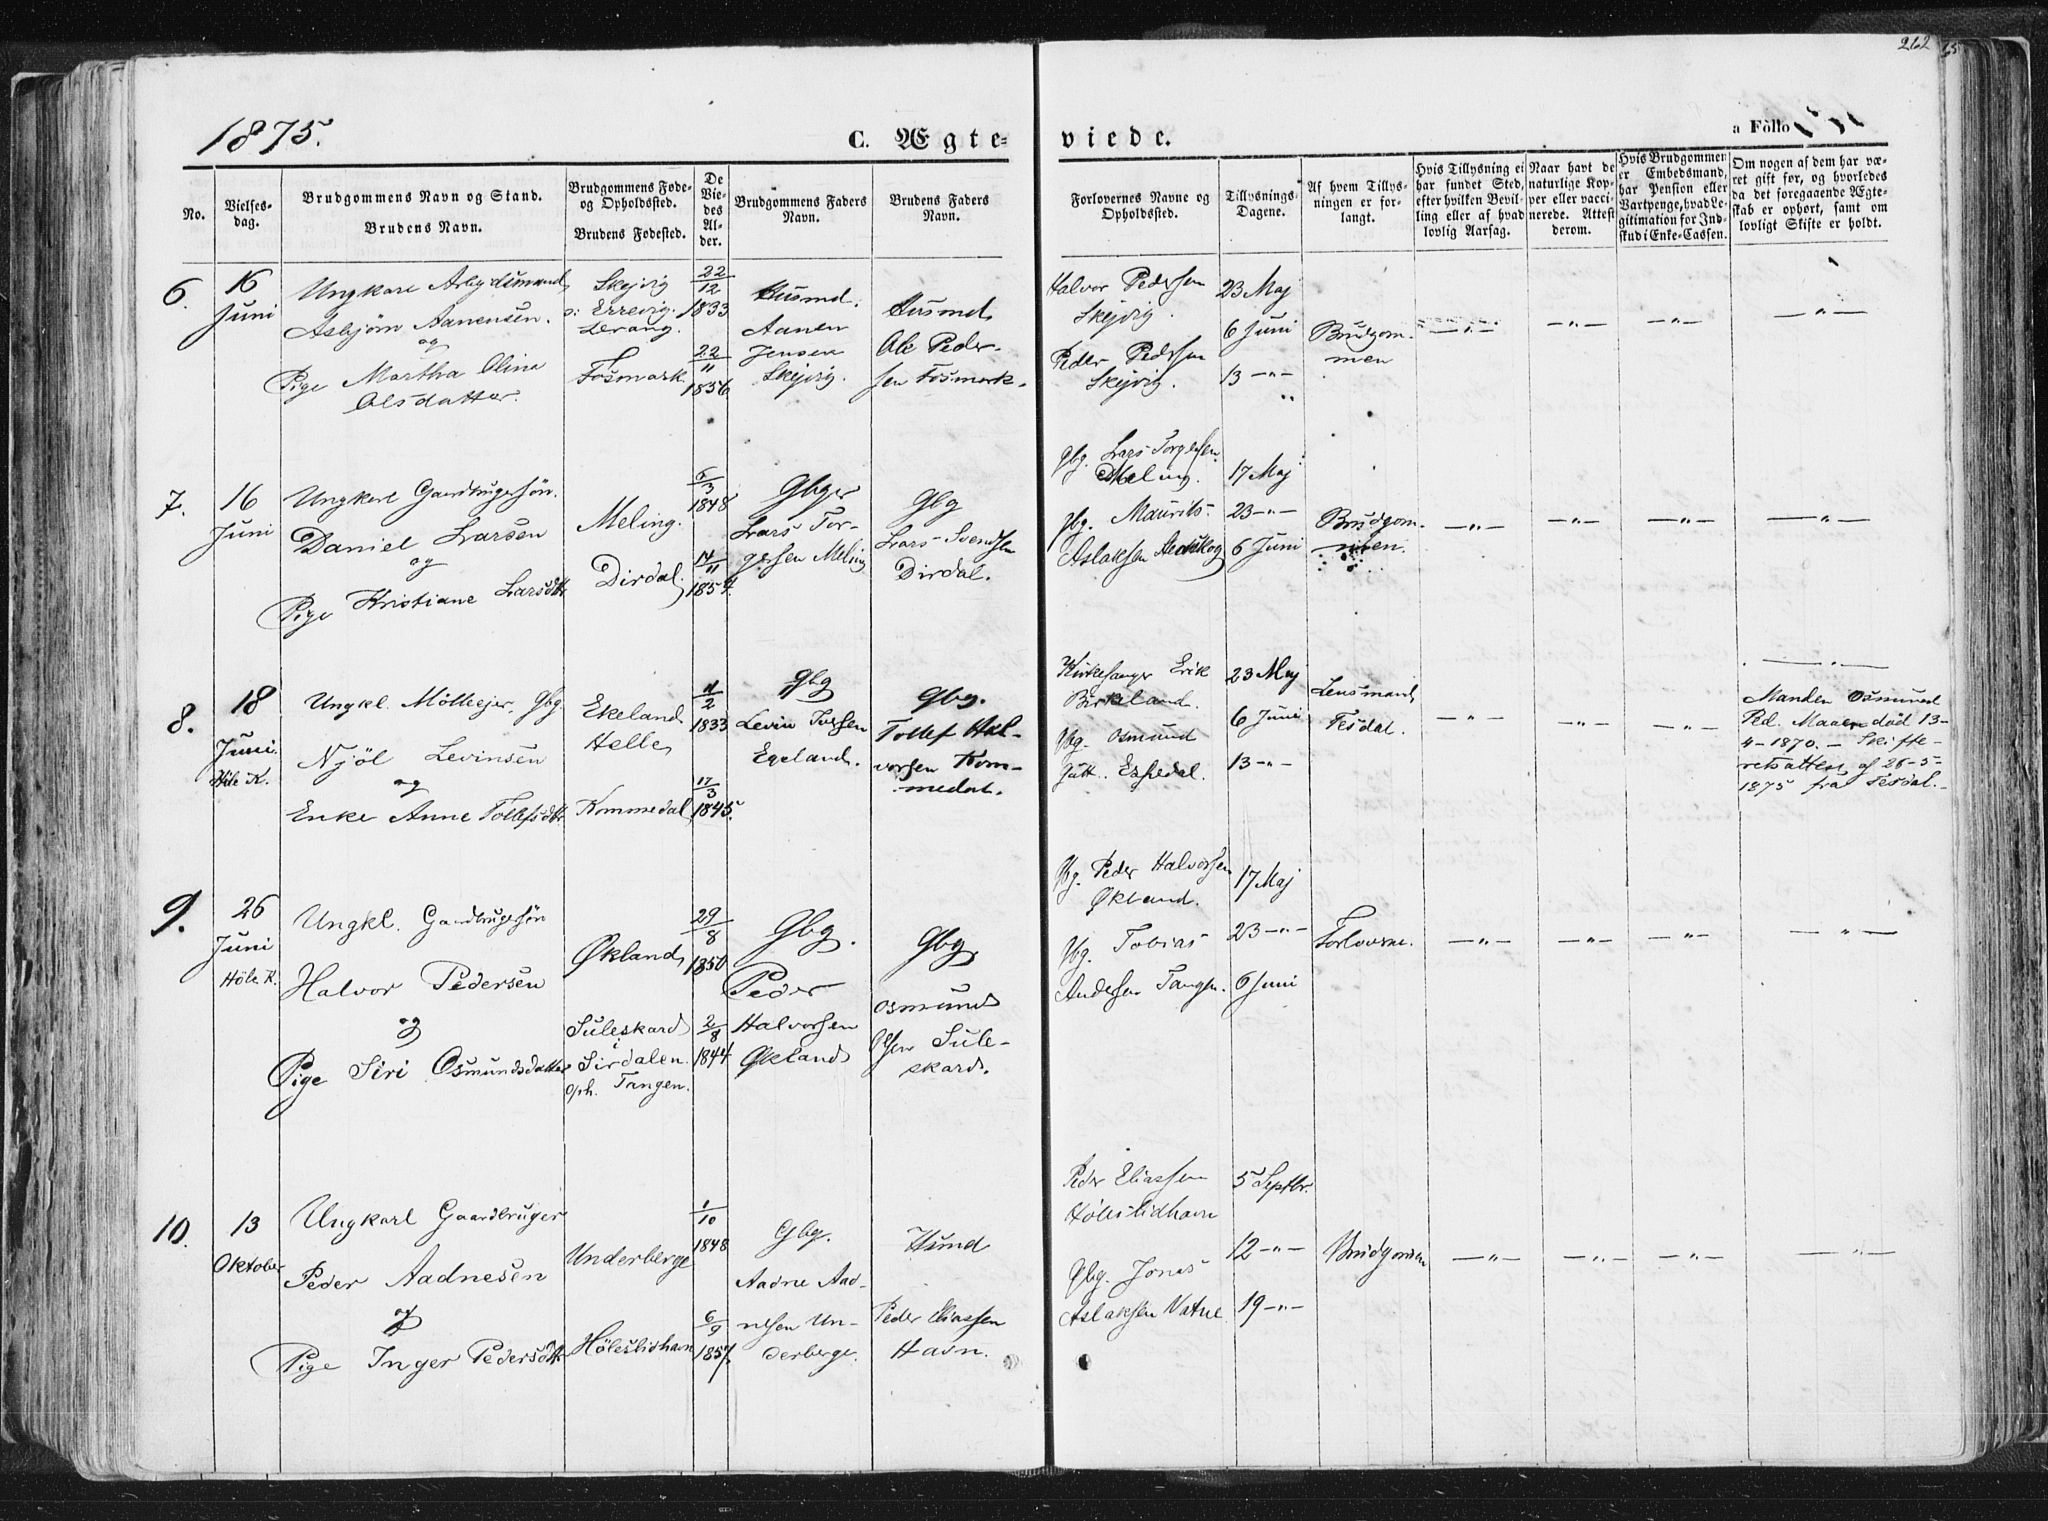 262
1875.
C. Ægte-
viede.
a Follo
No.
Vielses-
dag.
Brudgommens Navn og Stand.
Brudens Navn.
Brudgommens Føde-
og Opholdssted.
Brudens Fødested.
De
Vie-
des
Al-
der.
Brudgommens Faders
Navn.
Brudens Faders
Navn.
Forlovernes Navne og
Opholdssted.
Tillysnings-
Dagene.
Af hvem Tillys-
ningen er for-
langt.
Hvis Tillysning ei
har fundet Sted,
efter hvilken Bevil-
ling eller af hvad
lovlig Aarsag.
Naar havt de
naturlige Kop-
per eller vacci-
nerede. Attest
derom.
Hvis Brudgommen
er Embedsmand,
har Pension eller
Vartpenge, hvad Le-
gitimation for Ind-
skud i Enke-Cassen.
Om nogen af dem har væ-
ret gift før, og hvorledes
da det foregaaende Ægte-
skab er ophørt, samt om
lovligt Skifte er holdt.
6.
16
Juni
Ungkarl Arbejdsmand
Asbjörn Aanensen.
og
Pige Martha Olina
Olsdatter.
Skejvig
o: Errevig.
Fosmark.
22/12
1833
22/11
1856
Husmd.
Aanen
Jensen
Skejvig.
Husmd.
Ole Peder-
sen Fosmark.
Halvor Pedersen
Skejvig.
Peder Pedersen
Skejvig.
23 Maj
6 Juni
13 -"-
"
Brudgom-
men
-"-
-"-
-"-
-"-
7.
16
Juni
Ungkarl Gaardbrugersön.
Daniel Larsen
og
Pige Kristiane Larsdtr
Meling.
Dirdal.
5/3
1848
14/11
1854.
Gbger
Lars Tor-
gersen Meling
Gbg
Lars Svendsen
Dirdal.
Gbg. Lars Torgersen
Meling.
Gbg. Maurits
Aslaksen
17 Maj
23 -"-
6 Juni
Brudgom-
men.
-"-
-"-
-"-
-"-
8.
18
Juni.
Höle K.
Ungkl. Mölleejer, Gbg.
Njöl Levinsen
og
Enke Anne Tollefsdtr.
Ekeland
Helle
Kommedal
11/2
1833
17/3
1845.
Gbg
Levin Iversen
Egeland.
Gbg.
Tollef Hal-
vorsen Kom-
medal.
Kirkesanger Erik
Birkeland.
Gbg. Osmund
Gutt. Espedal.
23 Maj
6 Juni
13 -"-
Lensmand
Tesdal.
-"-
-"-
-"-
-"-
Manden Osmund
Ped. Maaen död 13-
4-1870. - Skifte-
retsattest af 26-5-
1875 fra Tesdal.-
9.
26
Juni
Höle K.
Ungkl. Gaardbrugersön
Halvor Pedersen
og
Pige Siri Osmundsdatter
Økland
Suleskard
i
Sirdalen.
Oph. Tangen.
29/8
1850
2/8
1844
Gbg.
Peder
Halvorsen
Økland
Gbg.
Osmund
Olsen Sule-
skard.
Gbg. Peder Halvorsen
Økland.
Gbg. Tobias
Andersen Tangen.
17 Maj
23 -"-
6 Juni
Forloverne.
-"-
-"-
-"-
-"-
10.
13
Oktober
Ungkarl Gaardbruger
Peder Aadnesen
og
Pige Inger Pedersdtr
Underberge
Höleslidhavn
1/10
1848
6/9
1857.
Gbg.
Aadne Aad-
nesen Un-
derberge.
Husmd
Peder Eliassen
Havn.
Peder Eliassen
Höleslidhavn
Gbg. Jonas
Aslaksen Vatne
5 Septbr.
12 -"-
19 -"-
Brudgommen
-"-
-"-
-"-
-"-